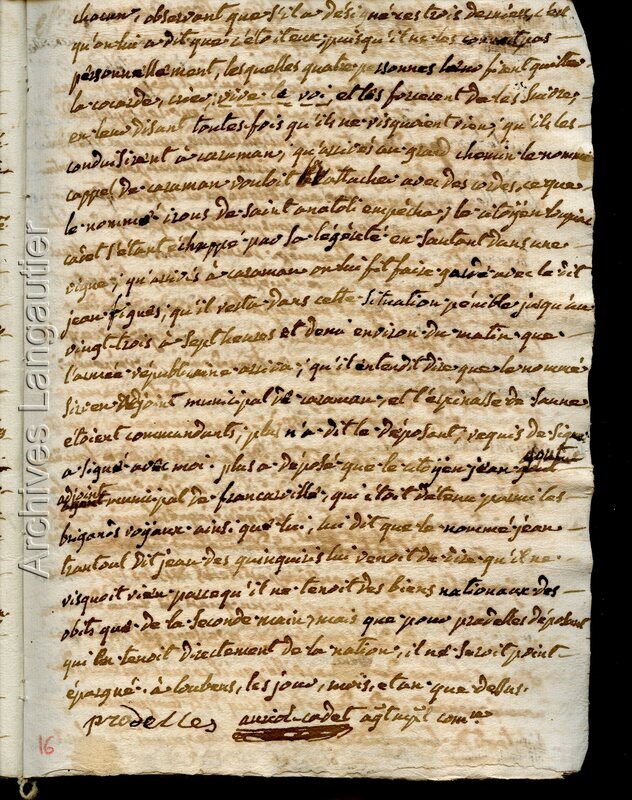 chacun, observant que s'il a désigné ces trois derniers, c'est
qu'on lui a dit que c'étoit eux, puisqu'il ne les connoit pas
personnellement, lesquelles quatre personnes leur firent quitter
la cocarde, crier, vive le roi, et les forcerent de les suivre,
en leur disant toutes fois qu'ils ne risquoient rien; qu'ils les
conduisirent à caraman; qu'arrivés au grand chemin le nommé
cappel de caraman vouloit attacher avec des cordes, ce que
le nommé irous de saint anatoli empecha; le citoyen
cadet s'étant échappé par sa légéreté en sautant dans une
vigne; qu'arrivés a caraman on lui fit faire garde avec le dit
jean figues; qu'il resta dans cette situation pénible jusqu'au
vingt trois a sept heures et demi environ du matin que
l'armée républicaine arriva; qu'il entendit dire que le nommé
adjoint municipal de caraman, et l'espinasse de saune
étoient commandants; plus n'a dit le déposant, requis de signer
a signé avec moi. plus a déposé que le citoyen jean
adjoint municipal de francarville, qui étoit détenu parmi les
brigands royaux ainsi que lui, lui dit que le nommé jean
trantoul dit jean des quinquiris lui venoit de dire qu'il ne
risquoit rien parcequ'il ne tenoit des biens nationaux des
obits que de la seconde main, mais que pour pradelles déposant
qui en tenoit directement de la nation, il ne seroit point
épargné. à loubers, les jour, mois, et an que dessus.
pradelles auriol-cadet agt mpl comre
16
Archives Langautier